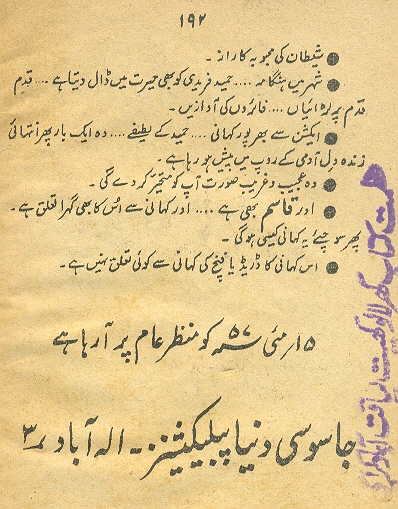 ۱۹۲
● شیطان کی محبوبہ کا راز ۔
● شہر میں ہنگامہ .... حمید فریدی کو بھی حیرت میں ڈال دیتا ہے .... قدم
قدم پر لڑائیاں .... فائروں کی آوازیں ۔
● ایکشن سے بھرپور کہانی .... حمید کے لطیفے .... وہ ایک بار پھر انتہائی
زندہ دل آدمی کے روپ میں پیش ہو رہا ہے ۔
● وہ عجیب و غریب صورت آپ کو متحیّر کر دے گی ۔
● اور قاسم بھی ہے .... اور کہانی سے اُس کا بھی گہرا تعلق ہے ۔
پھر سوچئے یہ کہانی کیسی ہوگی ۔
● اس کہانی کا ڈریڈ یا فنچ کی کہانی سے کوئی تعلق نہیں ہے ۔
۱۵ مئی ۵۷ء کو منظر عام پر آ رہا ہے
جاسوسی دنیا پبلیکیشنز ۔ الہ آباد ۳
ھمت کتاب گھر لالوکھیت لیاقت آباد